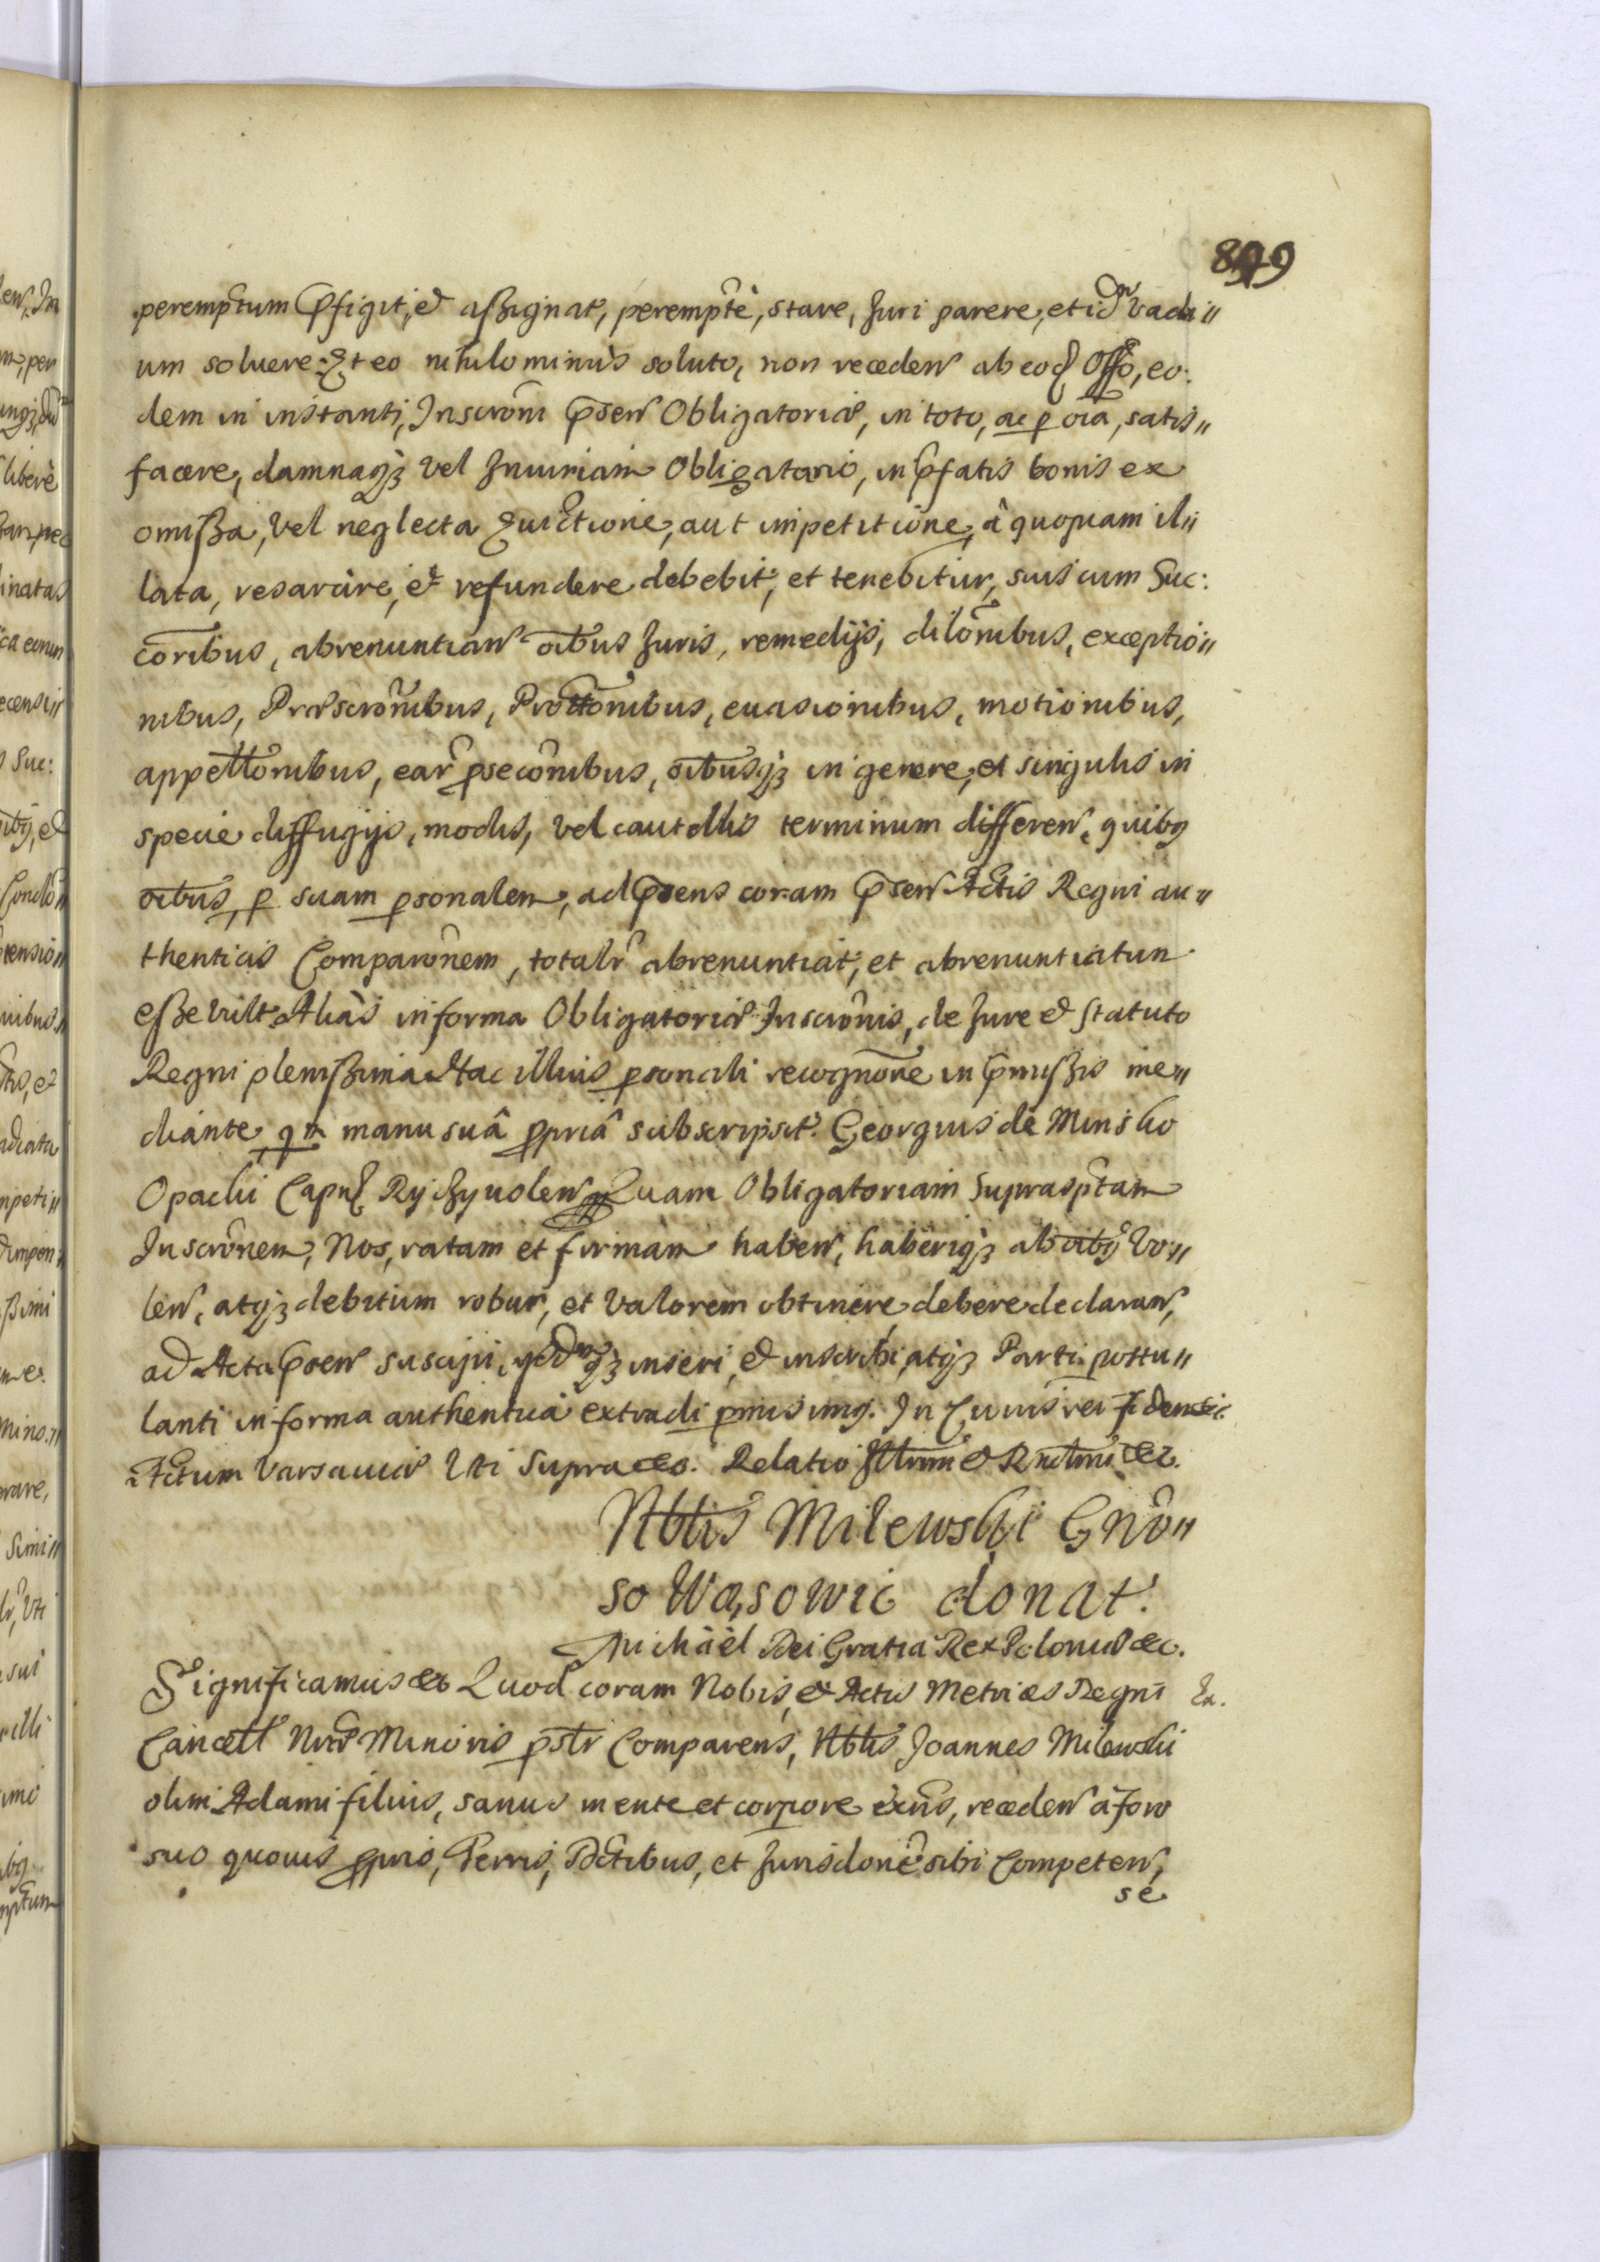 899
peremptum p̃figit, et assignat, perempte, stare, Juri parere, et id̃ vadi„
um soluere. Et eo nihilominus soluto, non receden̄ ab eod̄ Offo, eo:
dem in instanti, Inscrõni p̃sen̄ Obligatoriæ, in toto, ac p oĩa, satis„
facere, damnaq3 vel Iniuriam Obligatorio, in p̃fatis bonis ex
omissa, vel neglecta Euictione, aut impetitione, à quopiam il„
lata, resarcire, et refundere debebit, et tenebitur, suis cum Suc:
coribus, abrenuntian̄ oĩbus Juris, remedijs, dilõnibus, exceptio„
nibus, Præscrõnibus, Prottõnibus, euasionibus, motionibus,
appellõnibus, ear̃ psecõnibus, oĩbusq3 in genere, et singulis in
specie diffugijs, modis, vel cautellis terminum differen̄, quibq
oĩbus, p suam psonalem, ad p̃sens coram p̃sen̄ Actis Regni au„
thenticis Comparõnem, totalr̃ abrenuntiat, et abrenuntiatum
esse vult. Alias in forma Obligatoriæ Inscrõnis, de Jure et Statuto
Regni plenissima. Hac illius psonali recognõne in p̃missis me„
diante, qm̃ manu suâ ppriâ subscripsit. Georgius de Minsko
Opacki Capn̄ Ryczywolen̄. Quam Obligatoriam Suprascptam
Inscrõnem, Nos, ratam et firmam haben̄, haberiq3 ab oĩbq vo„
len̄, atq3 debitum robur, et valorem obtinere debere declaran̄,
ad Acta p̃sen̄ suscipi, q3 inseri, et inscribi, atq3 Parti postu„
lanti in forma authentica extradi pmisimq. In Cuius rei fidem &c.
Actum Varsauiæ Uti Supra &c. Relatio Illrmi et Rndmi &c.
Nbtis Milewski Gnro„
so Wąsowic donat.
Michael Dei Gratia Rex Poloniæ &c.
Significamus &c Quod coram Nobis, et Actis Metricæs Regni Ex.
Cancell Nræ Minoris pstr̃ Comparens, Nbtis Joannes Milewski
olim Adami filius, sanus mente et corpore exñs, receden̄ à foro
suo quouis pprio, Terris, Dctibus, et Jurisdone sibi Competen̄,
se